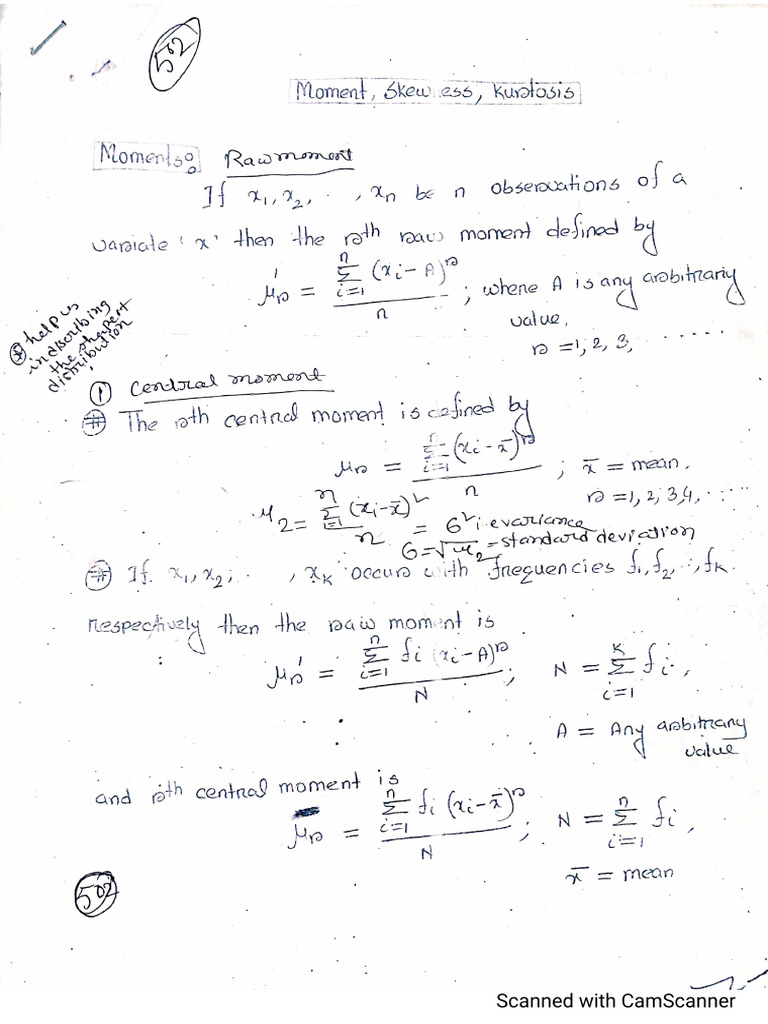 502
Moment, Skewness, Kurtosis
Moments: Raw moment
If x₁, x₂, . . , xn be n observations of a
variate 'x' then the rth raw moment defined by
μ'r = Σ_{i=1}^{n} (xi - A)^r / n ; where A is any arbitrary
value,
r = 1, 2, 3, ......
⊛ help us
in discribing
the shape of
distribution
① Central moment
# The rth central moment is defined by
μr = Σ_{i=1}^{n} (xi - x̄)^r / n ; x̄ = mean,
r = 1, 2, 3, 4, ....
μ2 = Σ_{i=1}^{n} (xi - x̄)² / n = σ² i.e variance
σ = √μ2 = standard deviation
# If x₁, x₂, . . , xK occur with frequencies f₁, f₂, ., fK.
respectively then the raw moment is
μr' = Σ_{i=1}^{n} fi (xi - A)^r / N ; N = Σ_{i=1}^{K} fi,
A = Any arbitrary
value
and rth central moment is
μr = Σ_{i=1}^{n} fi (xi - x̄)^r / N ; N = Σ_{i=1}^{n} fi,
x̄ = mean
502
Scanned with CamScanner